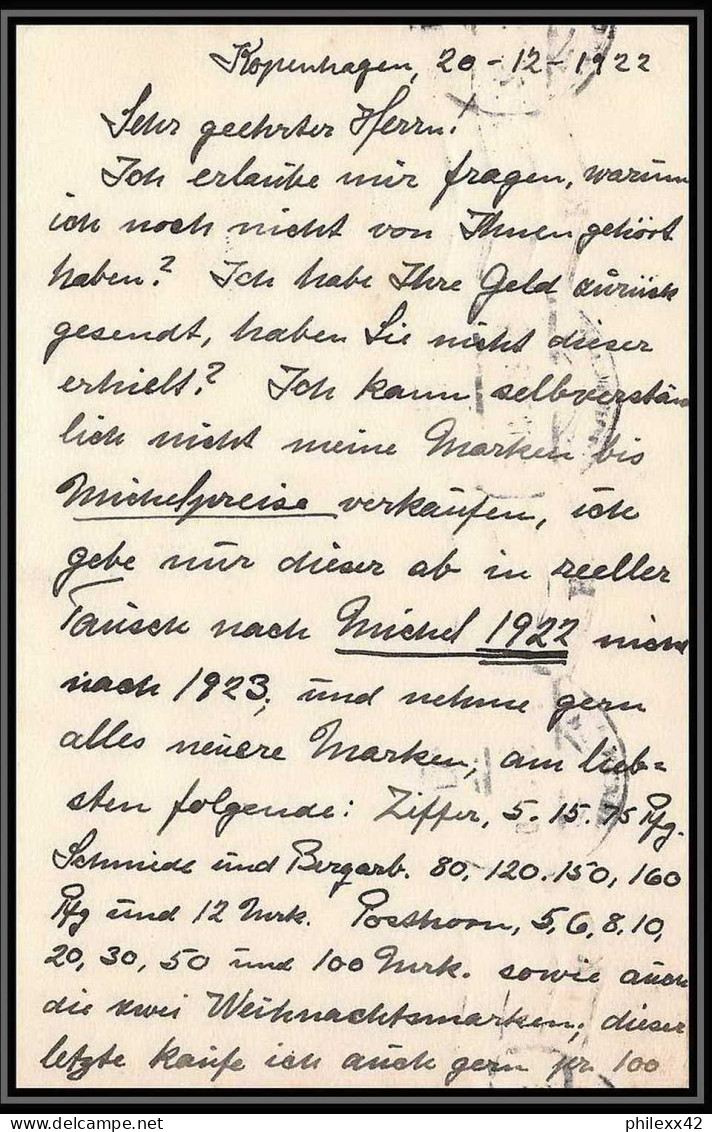 Kopenhagen, 20-12-1922
Sehr geehrter Herrn!
Ich erlaube mir fragen, warum
ich noch nicht von Ihnen gehört
haben? Ich habe Ihre Geld zurück
gesendt, haben Sie nicht dieser
erhielt? Ich kann selbverständ
lich nicht meine Marken bis
Michelpreise verkaufen, ich
gebe nur dieser ab in reeller
Tausch nach Michel 1922 nicht
nach 1923, und nehme gern
alles neuere Marken, am lieb=
sten folgende: Ziffer, 5. 15. 75 Pfg.
Schmiede und Bergarb. 80, 120. 150, 160
Pfg und 12 Mrk. Posthorn, 5, 6, 8. 10,
20, 30, 50 und 100 Mrk. sowie auch
die zwei Weihnachtsmarken, dieser
letzte kaufe ich auch gern pr. 100
philexx42